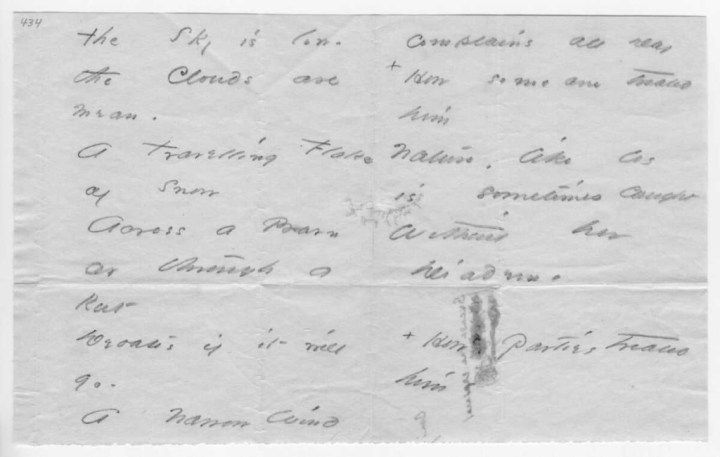 434
The Sky is low.
the Clouds are
mean.
A Travelling Flake
of Snow
Across a Barn
or through a
Rut
Debates if it will
go.
A Narrow Wind
Complains all day
+ How some one treated
him
Nature, like Us
is sometimes caught
Without her
Diadem.
+ How Parties treated
him